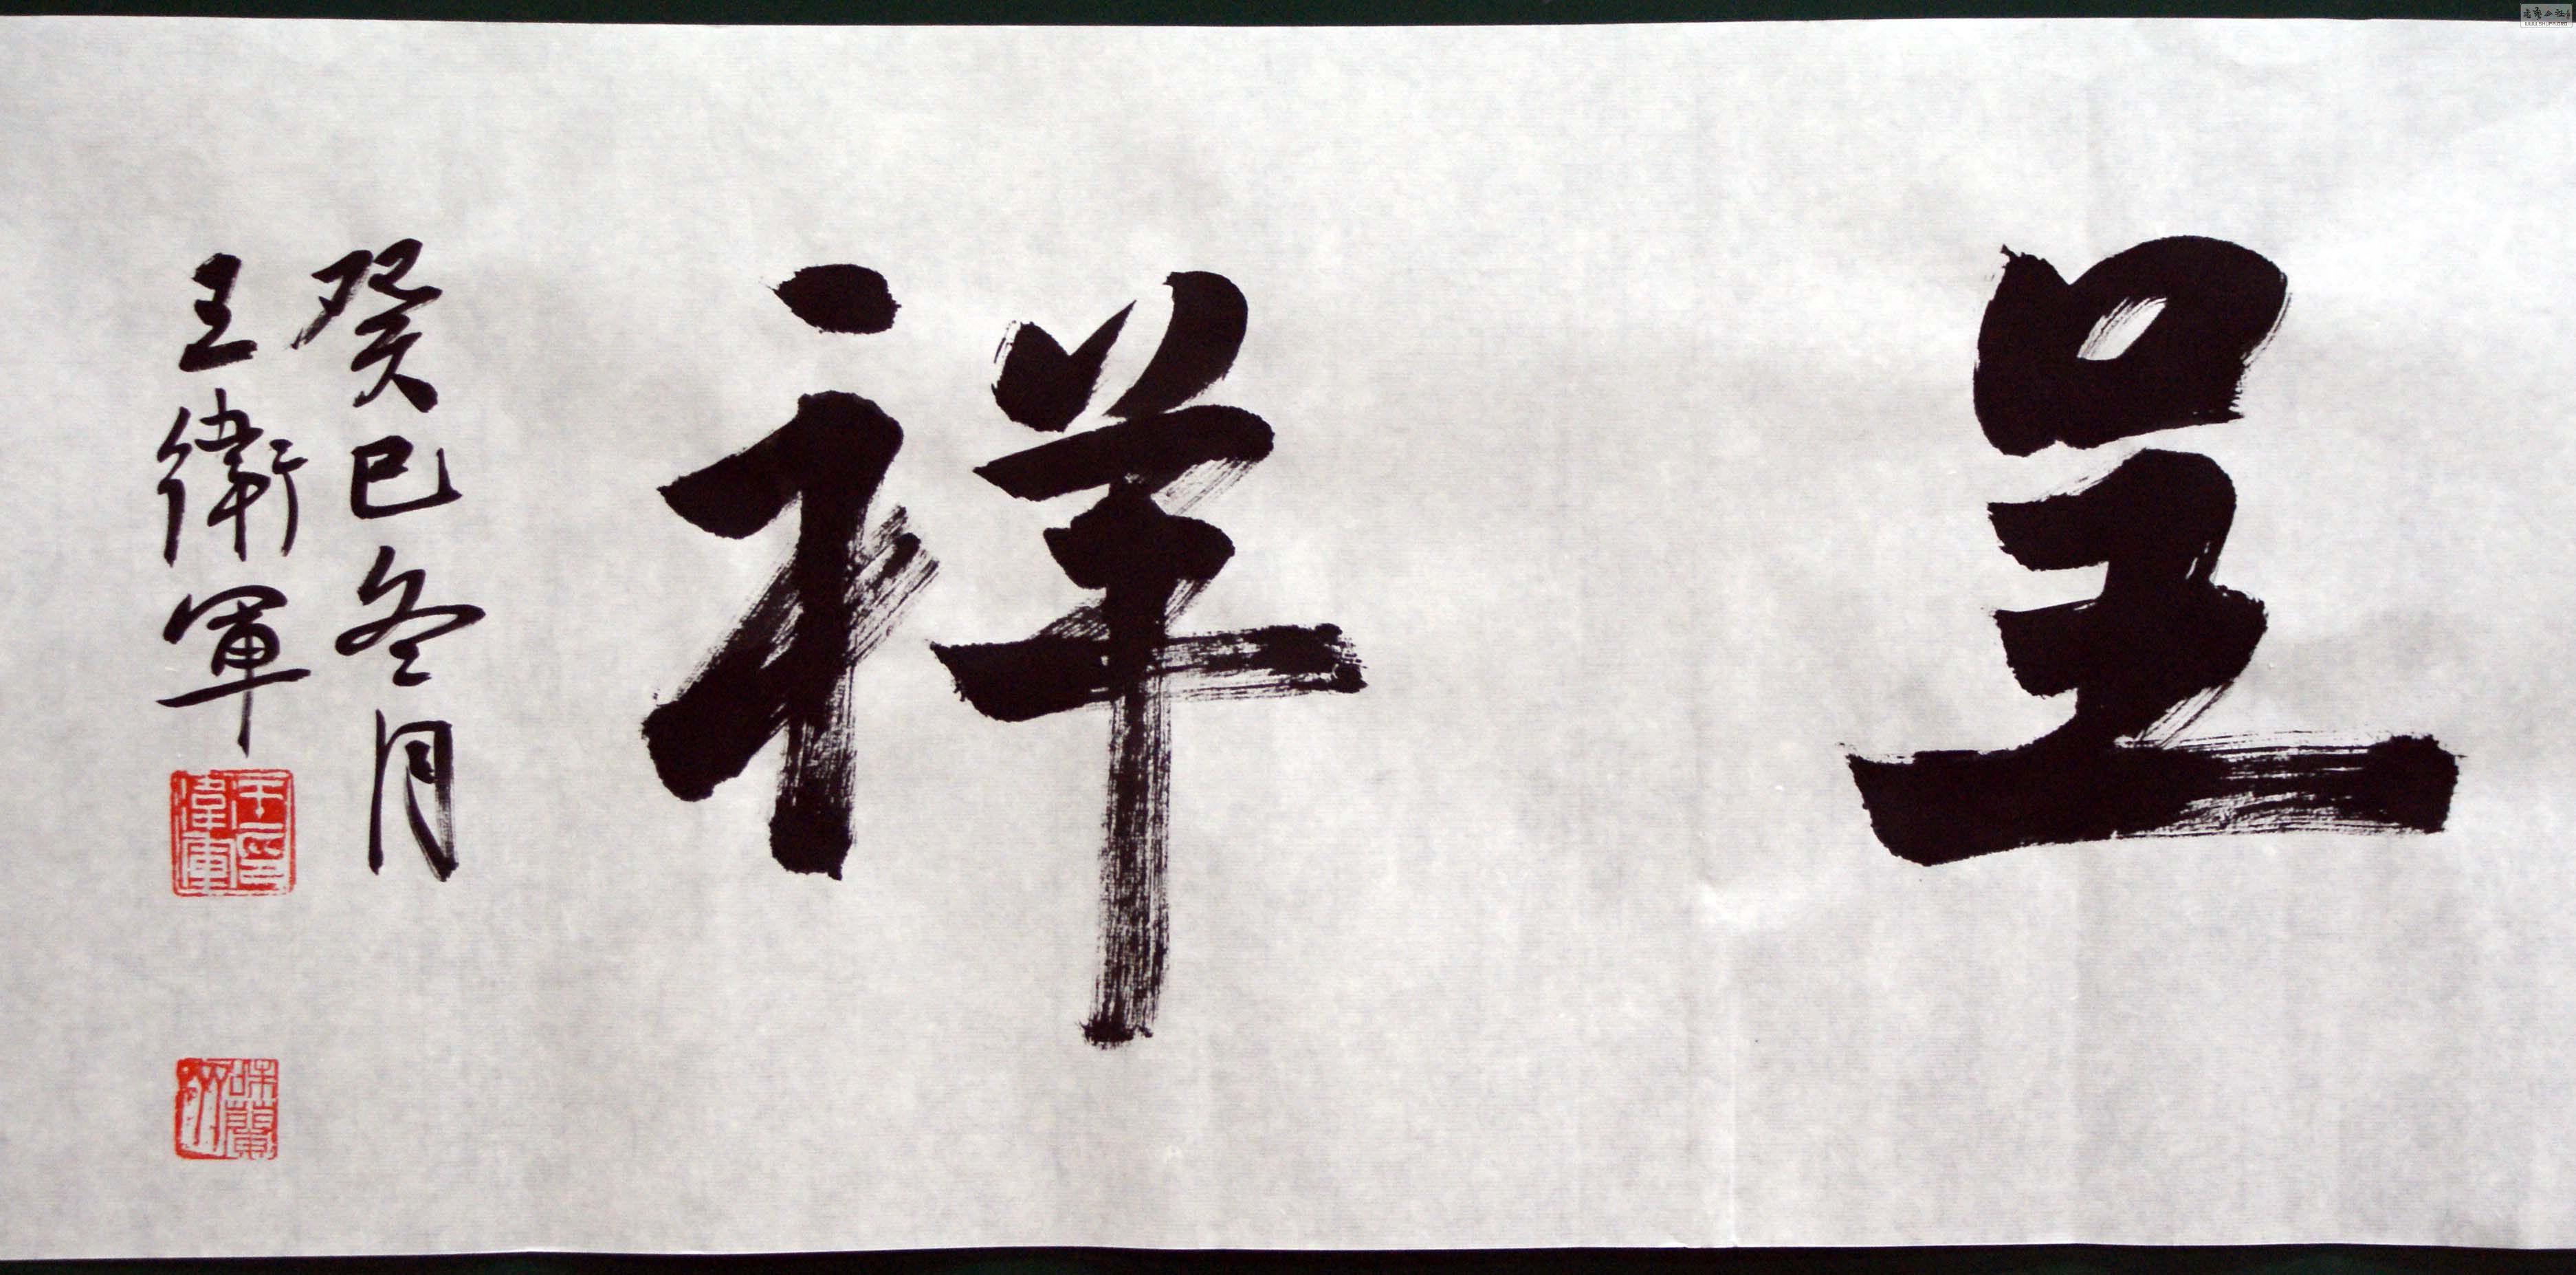 呈祥
癸巳冬月
王衛軍
王印偉軍